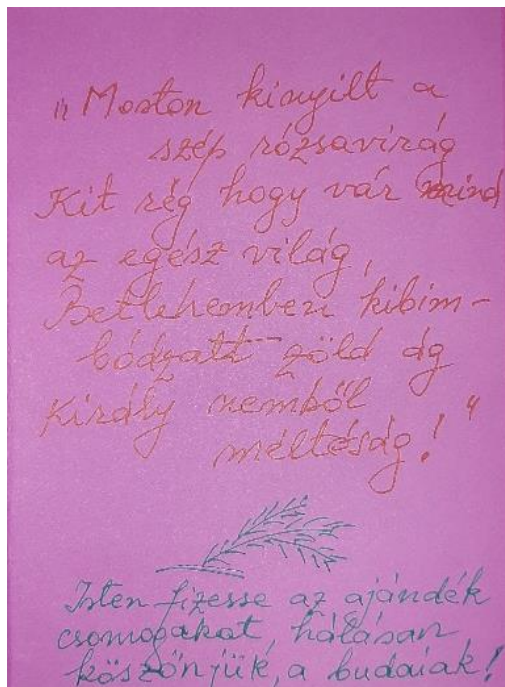 "Moston kinyílt a
szép rózsavirág
Kit rég hogy vár mind
az egész világ,
Betlehemben kibim-
bódzatt zöld ág
Király nemből
méltóság!"
Isten fizesse az ajándék
csomagokat, hálásan
köszönjük, a budaiak!